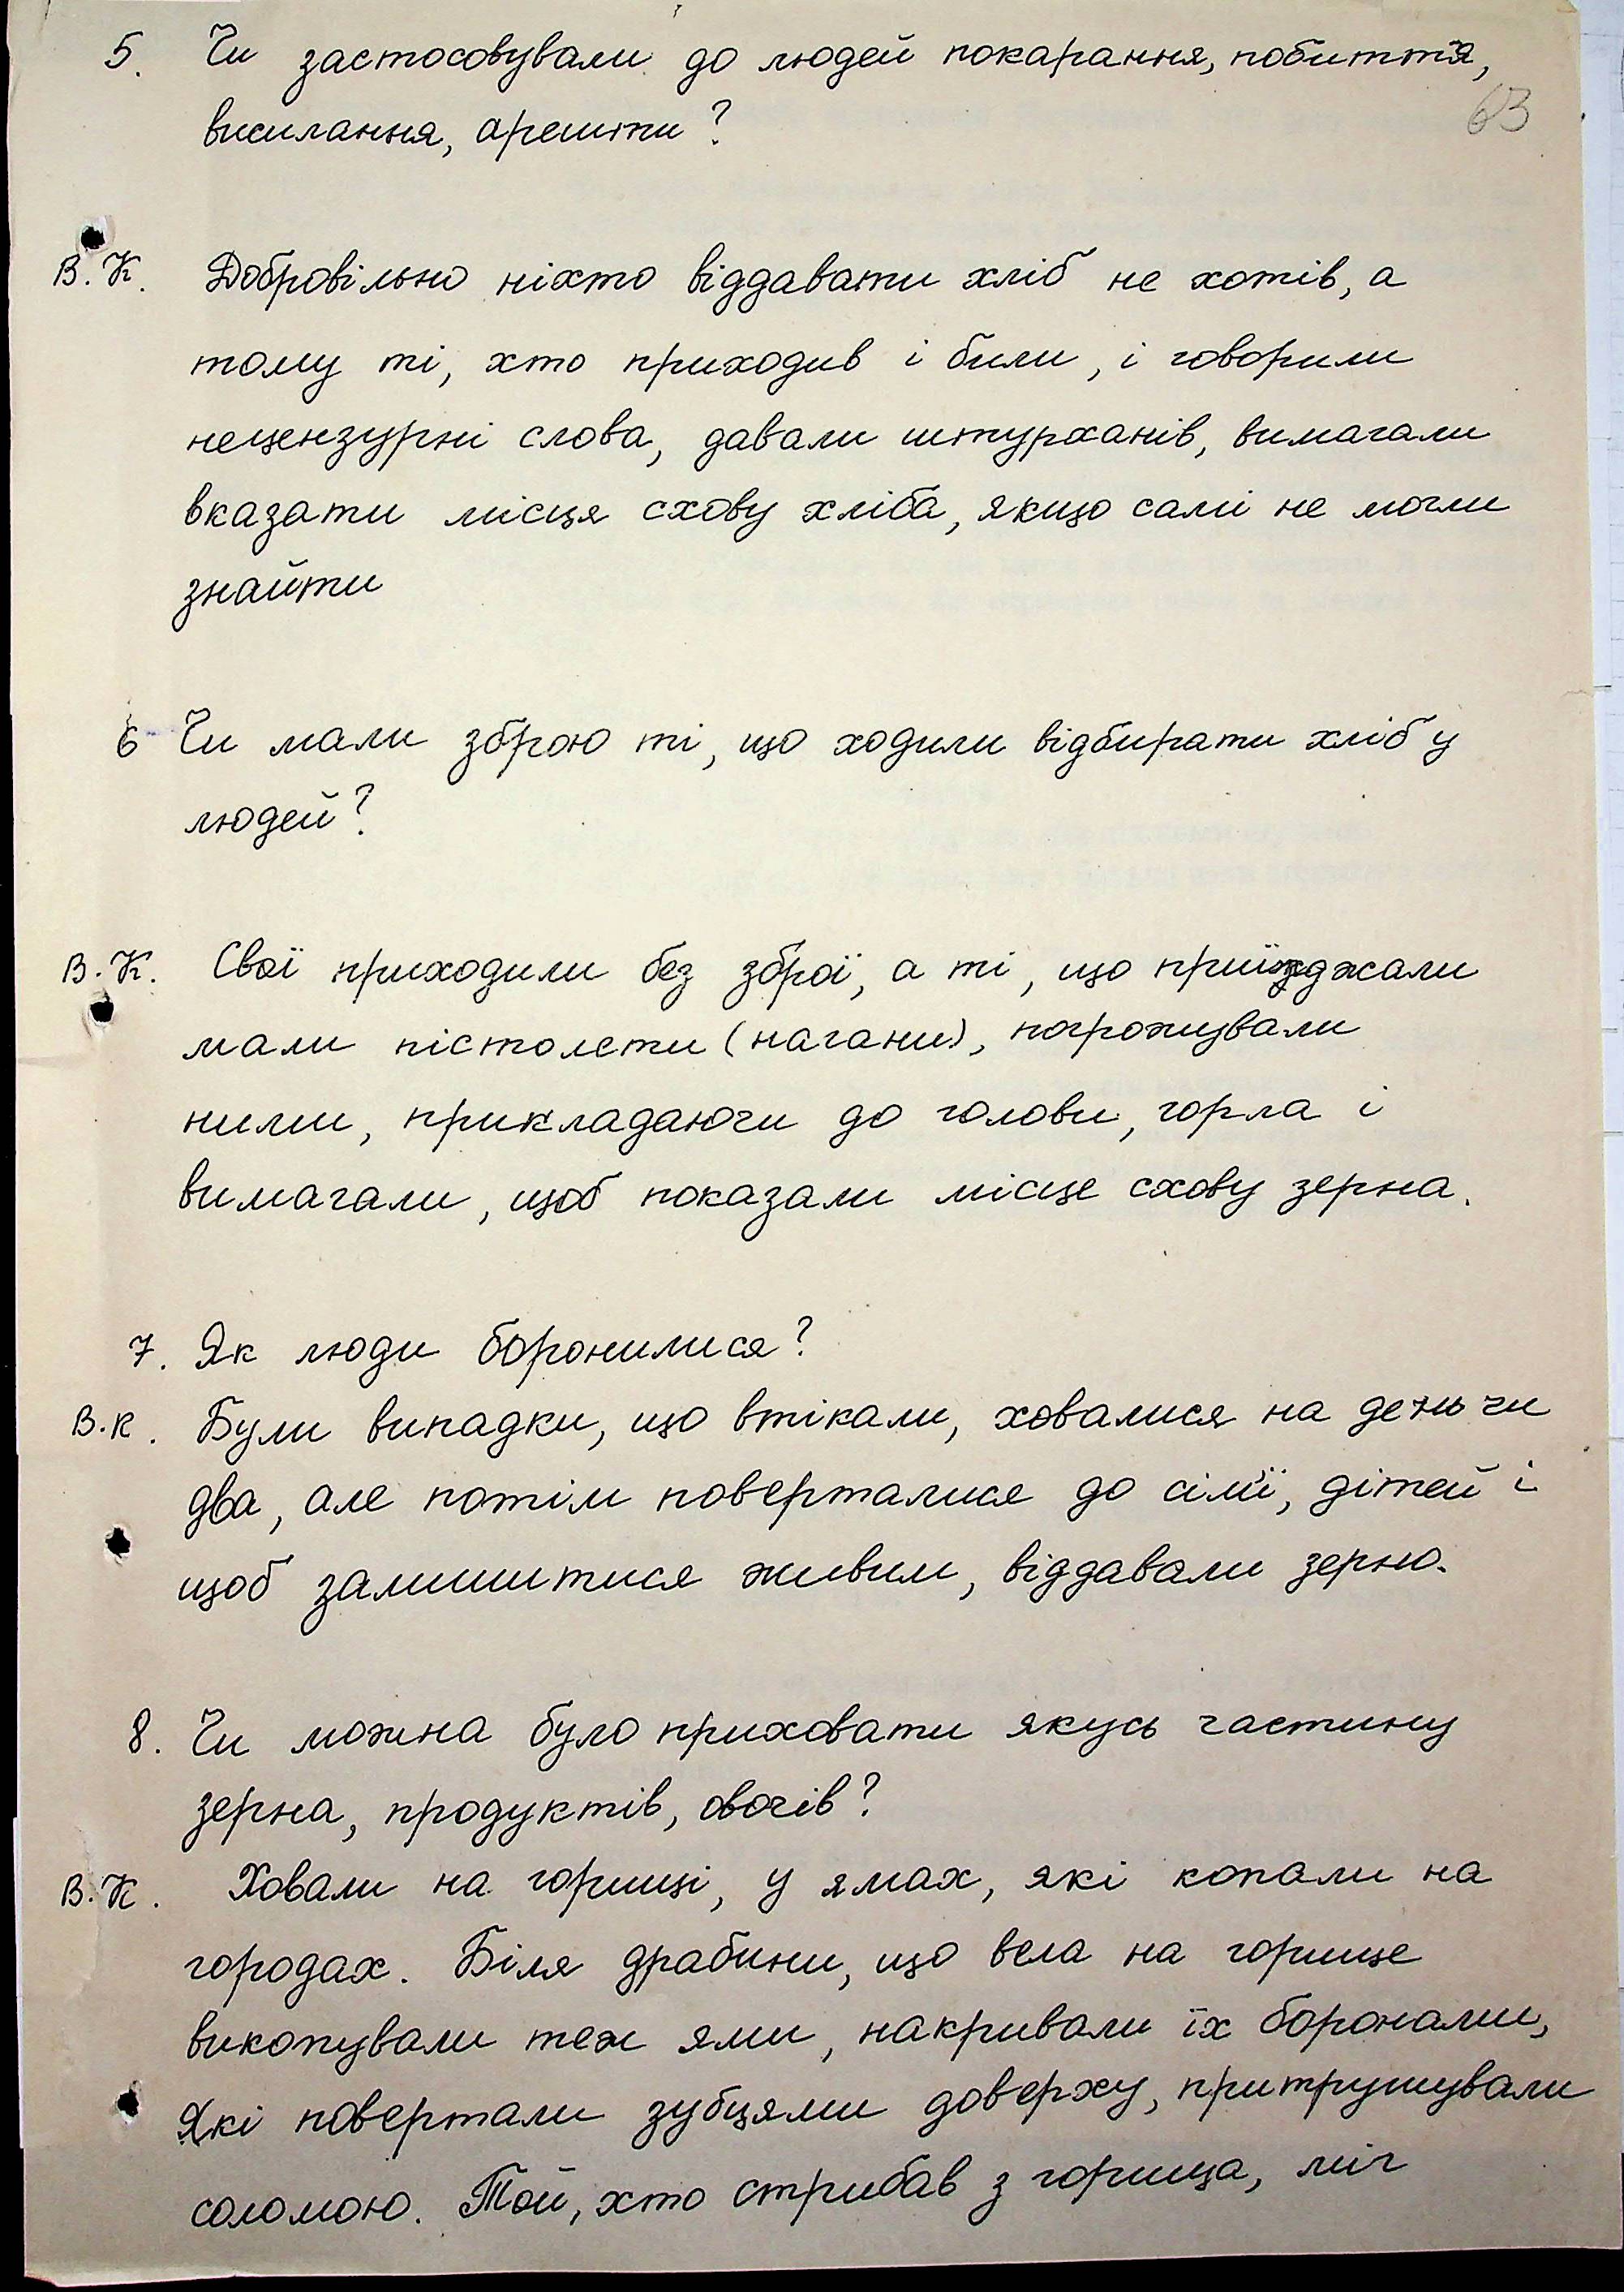 5. Чи застосовували до людей покарання, побиття,
63
висилання, арешти?
В.К. Добровільно ніхто віддавати хліб не хотів, а
тому ті, хто приходив і били, і говорили
нецензурні слова, давали штурханів, вимагали
вказати місця схову хліба, якщо самі не могли
знайти
6 Чи мали зброю ті, що ходили відбирати хліб у
людей?
В.К. Свої приходили без зброї, а ті, що приїзджали
мали пістолети (нагани), погрожували
ними, прикладаючи до голови, горла і
вимагали, щоб показали місце схову зерна.
7. Як люди боронилися?
В.К. Були випадки, що втікали, ховалися на день чи
два, але потім поверталися до сім'ї, дітей і
щоб залишитися живим, віддавали зерно.
8. Чи можна було приховати якусь частину
зерна, продуктів, овочів?
В.К. Ховали на горищі, у ямах, які копали на
городах. Біля драбини, що вела на горище
викопували теж ями, накривали їх боронами,
які повертали зубцями доверху, притрушували
соломою. Той, хто стрибав з горища, міг